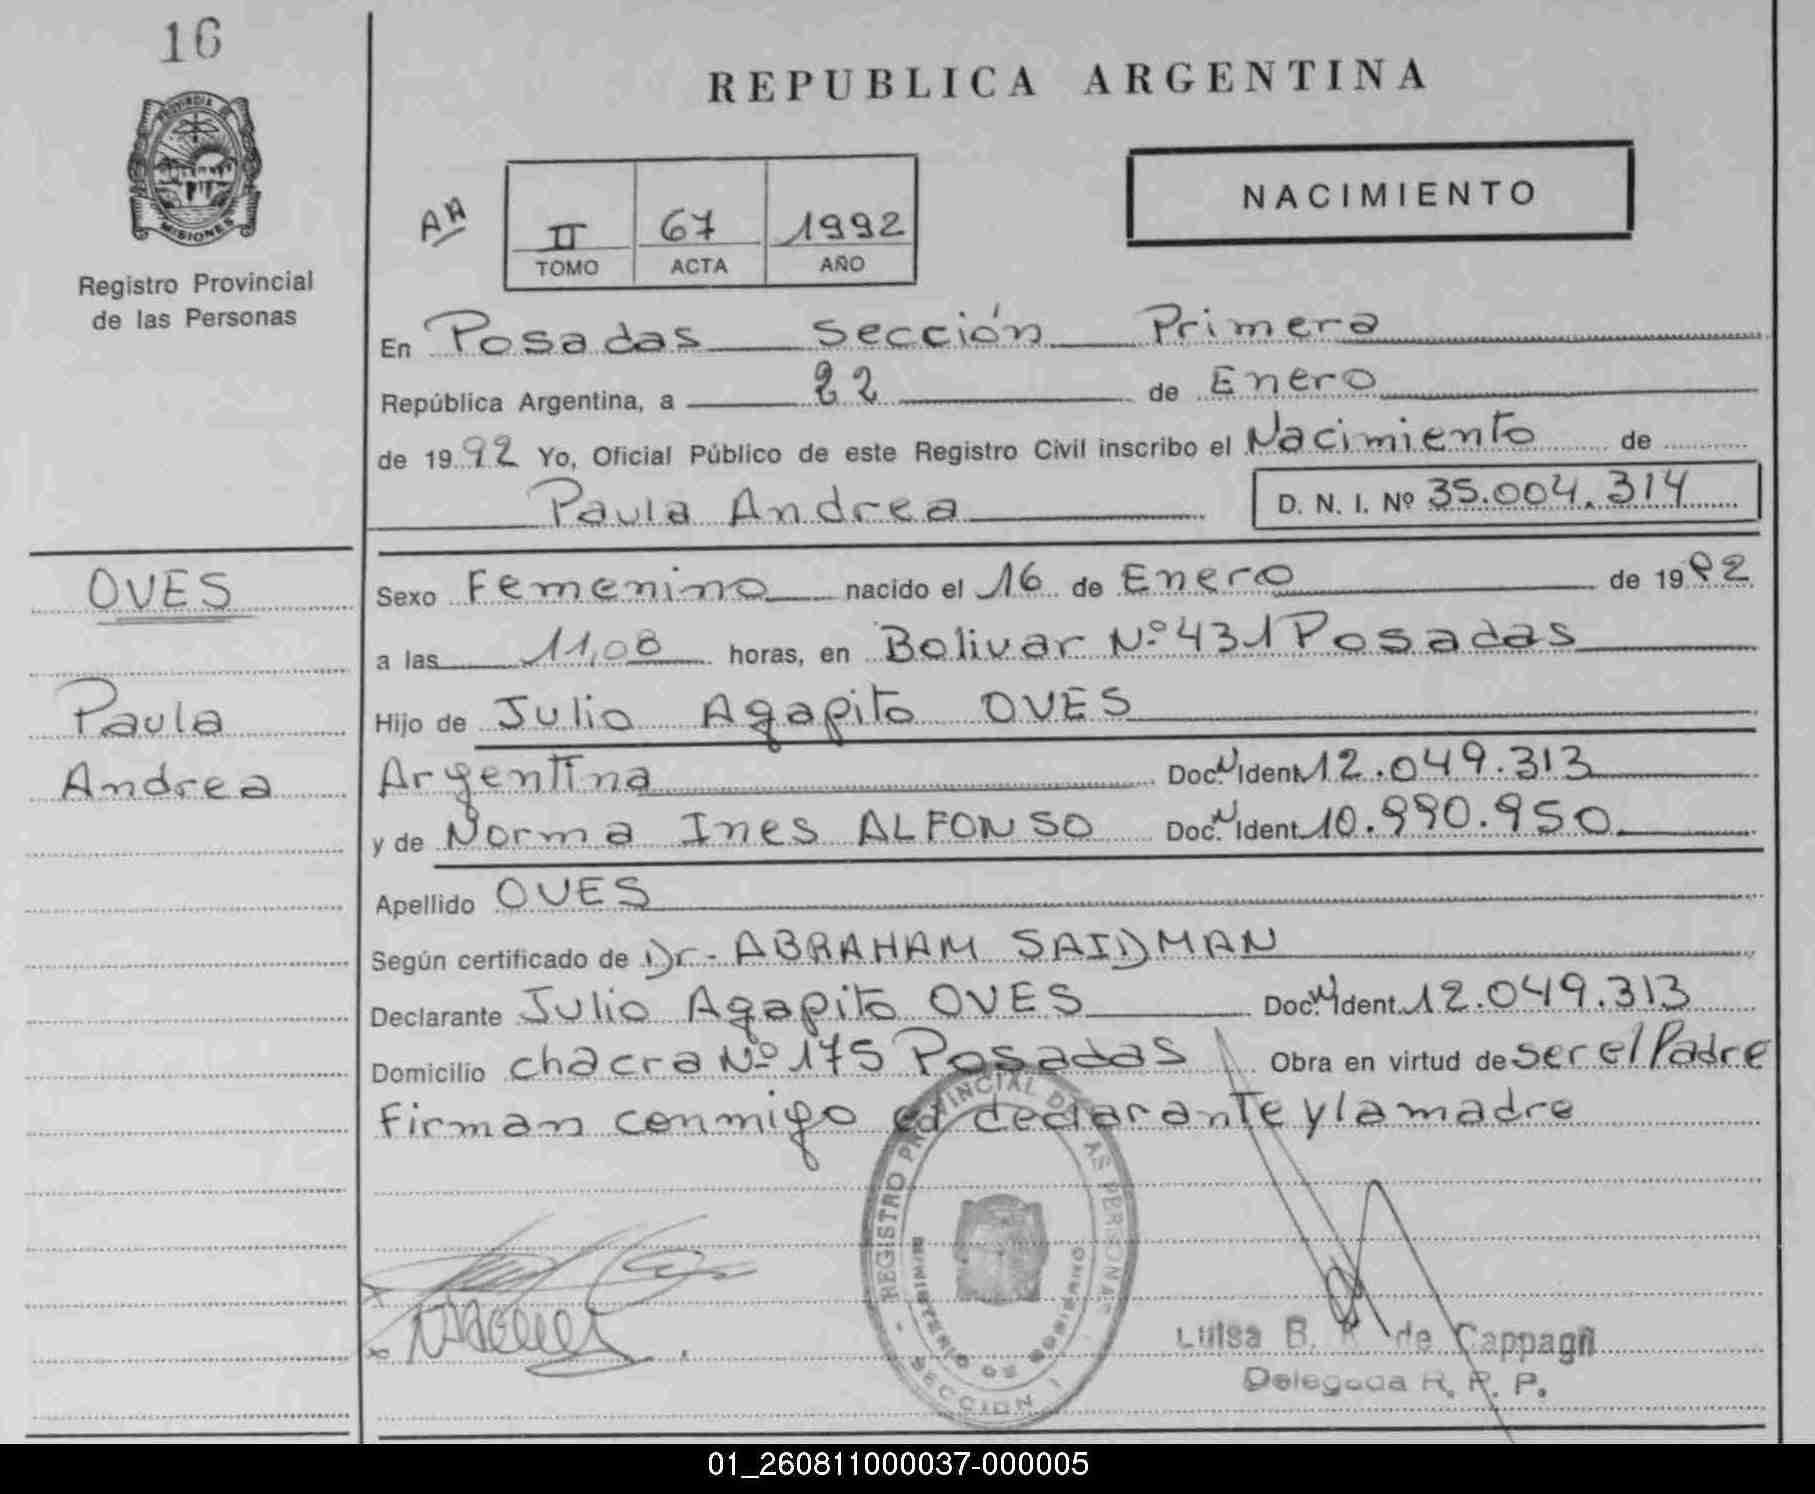 16
REPUBLICA ARGENTINA
PROVINCIA DE
MISIONES
Registro Provincial
de las Personas
AA
II 67 1992
TOMO ACTA AÑO
NACIMIENTO
En Posadas Sección Primera
República Argentina, a 22 de Enero
de 1992 Yo, Oficial Público de este Registro Civil inscribo el Nacimiento de
Paula Andrea D. N. I. Nº 35.004.314
OVES
Paula
Andrea
Sexo Femenino nacido el 16 de Enero de 1992
a las 11,08 horas, en Bolivar Nº 431 Posadas
Hijo de Julio Agapito OVES
Argentina Doc. N Ident. 12.049.313
y de Norma Ines ALFONSO Doc. N Ident. 10.990.950
Apellido OVES
Según certificado de Dr. ABRAHAM SAIDMAN
Declarante Julio Agapito OVES Doc. N Ident. 12.049.313
Domicilio chacra Nº 175 Posadas Obra en virtud de ser el Padre
Firman conmigo el declarante y la madre
REGISTRO PROVINCIAL DE LAS PERSONAS
MINISTERIO DE GOBIERNO
SECCION 1
Luisa B. de Cappagli
Delegada R. P. P.
01_260811000037-000005